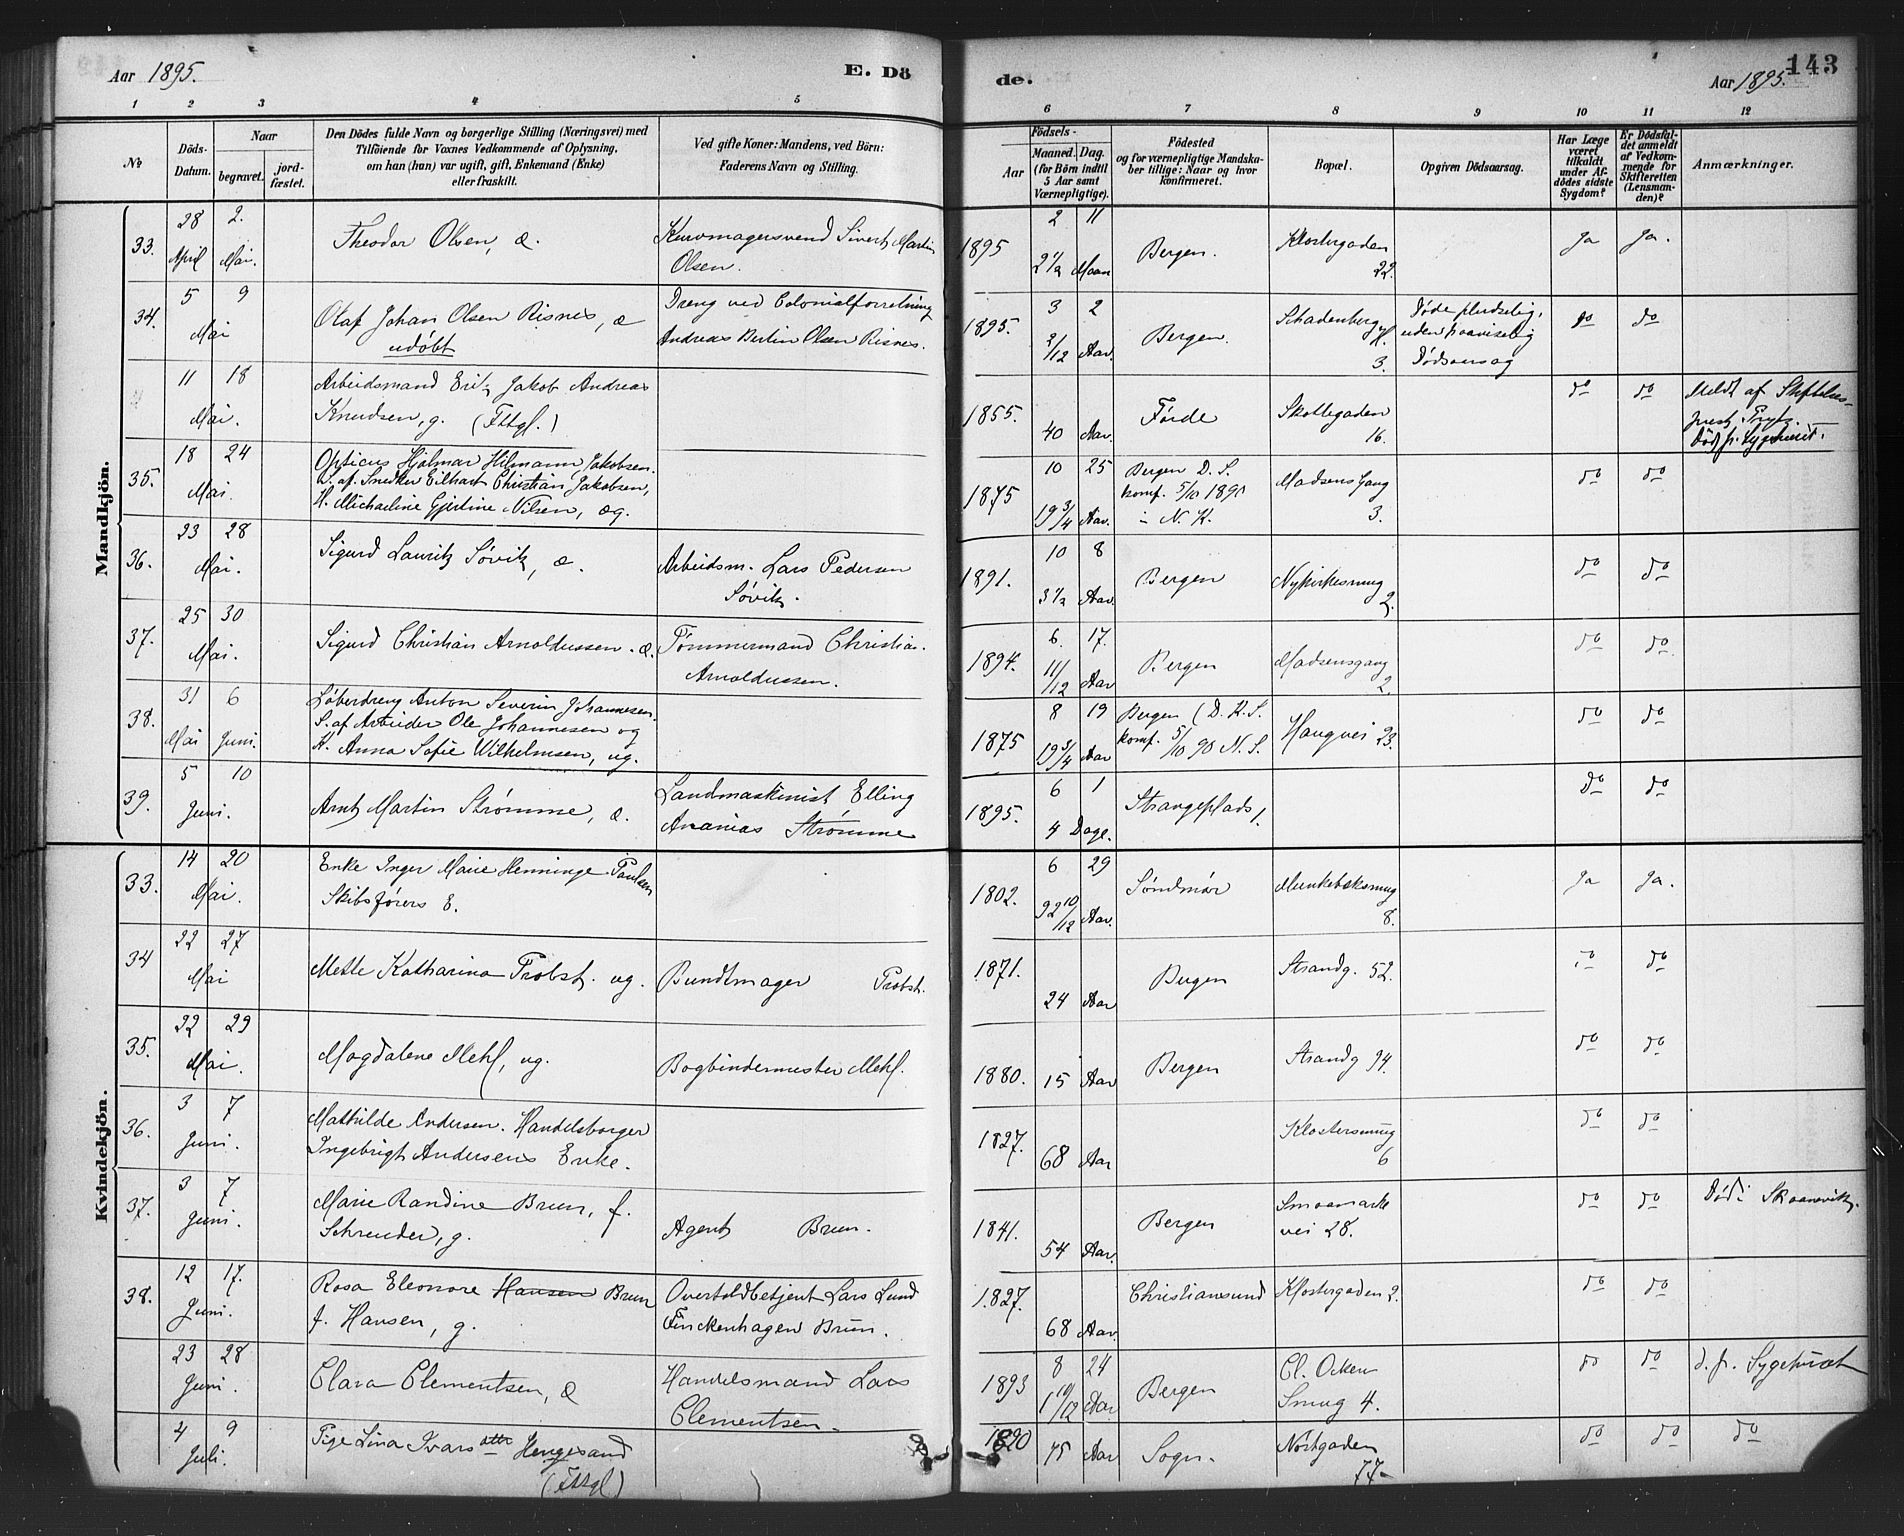 Aar 1895.
E. Dö
de.
143
Aar 1895.
1 2 3 4 5 6 7 8 9 10 11 12
No
Döds-
Datum.
Naar
begravet.
jord-
fæstet.
Den Dödes fulde Navn og borgerlige Stilling (Næringsvei) med
Tilföiende for Voxnes Vedkommende af Oplysning,
om han (hun) var ugift, gift, Enkemand (Enke)
eller fraskilt.
Ved gifte Koner: Mandens, ved Börn:
Faderens Navn og Stilling.
Födsels-
Aar
Maaned. Dag.
(for Börn indtil
5 Aar samt
Værnepligtige).
Födested
og for værnepligtige Mandska-
ber tillige: Naar og hvor
konfirmeret.
Bopæl.
Opgiven Dödsaarsag.
Har Læge
været
tilkaldt
under Af-
dödes sidste
Sygdom?
Er Dödsfal-
det anmeldt
af Vedkom-
mende for
Skifteretten
(Lensman-
den)?
Anmærkninger.
Mandkjön.
33.
28 2.
April Mai.
Theodor Olsen, æ.
Kurvmagersvend Sivert Martin
Olsen.
1895
2 11
2½ Maan
Bergen.
Klostergaden
22.
Ja Ja.
34.
5 9
Mai
Olaf Johan Olsen Risnes, æ
udøbt
Dreng ved Colonialforretning
Andreas Bertin Olsen Risnes.
1895.
3 2
2/12 Aar.
Bergen.
Schadenberg
3.
Døde pludselig,
uden paaviselig
Dødsaarsag
do do
11 18
Mai.
Arbeidsmand Erik Jakob Andreas
Knudsen, g. (Fttgl.)
1855.
40 Aar.
Førde
Skottegaden
16.
do do
Meldt af Stiftelses-
prest
Død p. Sygehuset.
35.
18 24
Mai.
Opticus Hjalmar Hilmann Jakobsen.
S. af Snedker Eilhart Christian Jakobsen,
H. Michaeline Gjertine Nilsen, æg.
1875
10 25
19 3/4 Aar.
Bergen D. S.
komf. 5/10 1890
i N. K.
Madsens Gang
3.
do do
36.
23 28
Mai.
Sigurd Lauritz Søvik, æ.
Arbeidsm. Lars Pedersen
Søvik.
1891.
10 8
3½ Aar.
Bergen
Nykirkesmug
2.
do do
37.
25 30
Mai.
Sigurd Christian Arnoldussen. æ.
Tømmermand Christian
Arnoldussen.
1894.
6 17.
11/12 Aar
Bergen
Madsensgang
2.
do do
38.
31 6
Mai Juni.
Løberdreng Anton Severin Johannesen.
S. af Arbeider Ole Johannesen og
H. Anna Sofie Wilhelmsen, ug.
1875
8 19
19 3/4 Aar
Bergen (D. K. S.
komf. 5/10 90 N. S.
Haugvei 23.
do do
39.
5 10
Juni.
Arnt Martin Strømme, æ.
Landmaskinist Elling
Ananias Strømme
1895.
6 1
4 Dage.
Strangeplads 1.
do do
Kvindekjön.
33.
14 20
Mai.
Enke Inger Marie Henninge Paulsen
Skibsførers E.
1802.
6 29
92 10/12 Aar.
Søndmør
Munkebeksmug
8.
Ja Ja.
34
22 27
Mai
Mette Katharina Probst. ug.
Bundtmager Probst.
1871.
24 Aar
Bergen
Strandg. 52.
do do
35.
22 29
Mai.
Magdalene Mehl, ug.
Bogbindermester Mehl.
1880.
15 Aar
Bergen
Strandg 94.
do do
36.
3 7
Juni.
Mathilde Andersen. Handelsborger
Ingebrigt Andersens Enke.
1827.
68 Aar
Klostersmug
6
do do
37.
3 7
Juni.
Marie Randine Brun, f.
Schreuder, g.
Agent Brun.
1841.
54 Aar.
Bergen
Smaamarke
vei 28.
do do
Død i Skaanevik.
38.
12 17.
Juni.
Rosa Eleonore Hansen Brun
f. Hansen, g.
Overtoldbetjent Lars Lund
Finckenhagen Brun.
1827.
68 Aar
Christiansund
Klostergaden 2.
do do
23 28
Juni.
Clara Clementsen, æ
Handelsmand Lars
Clementsen.
1893
8 24
1 10/12 Aar
Bergen
Cl. Ocken
Smug 4.
do do
d. p. Sygehuset
4 9
Juli.
Pige Lina Ivarsdttr Hengesand
(Fttgl)
1820
75 Aar
Sogn.
Nostgaden
77.
do do do